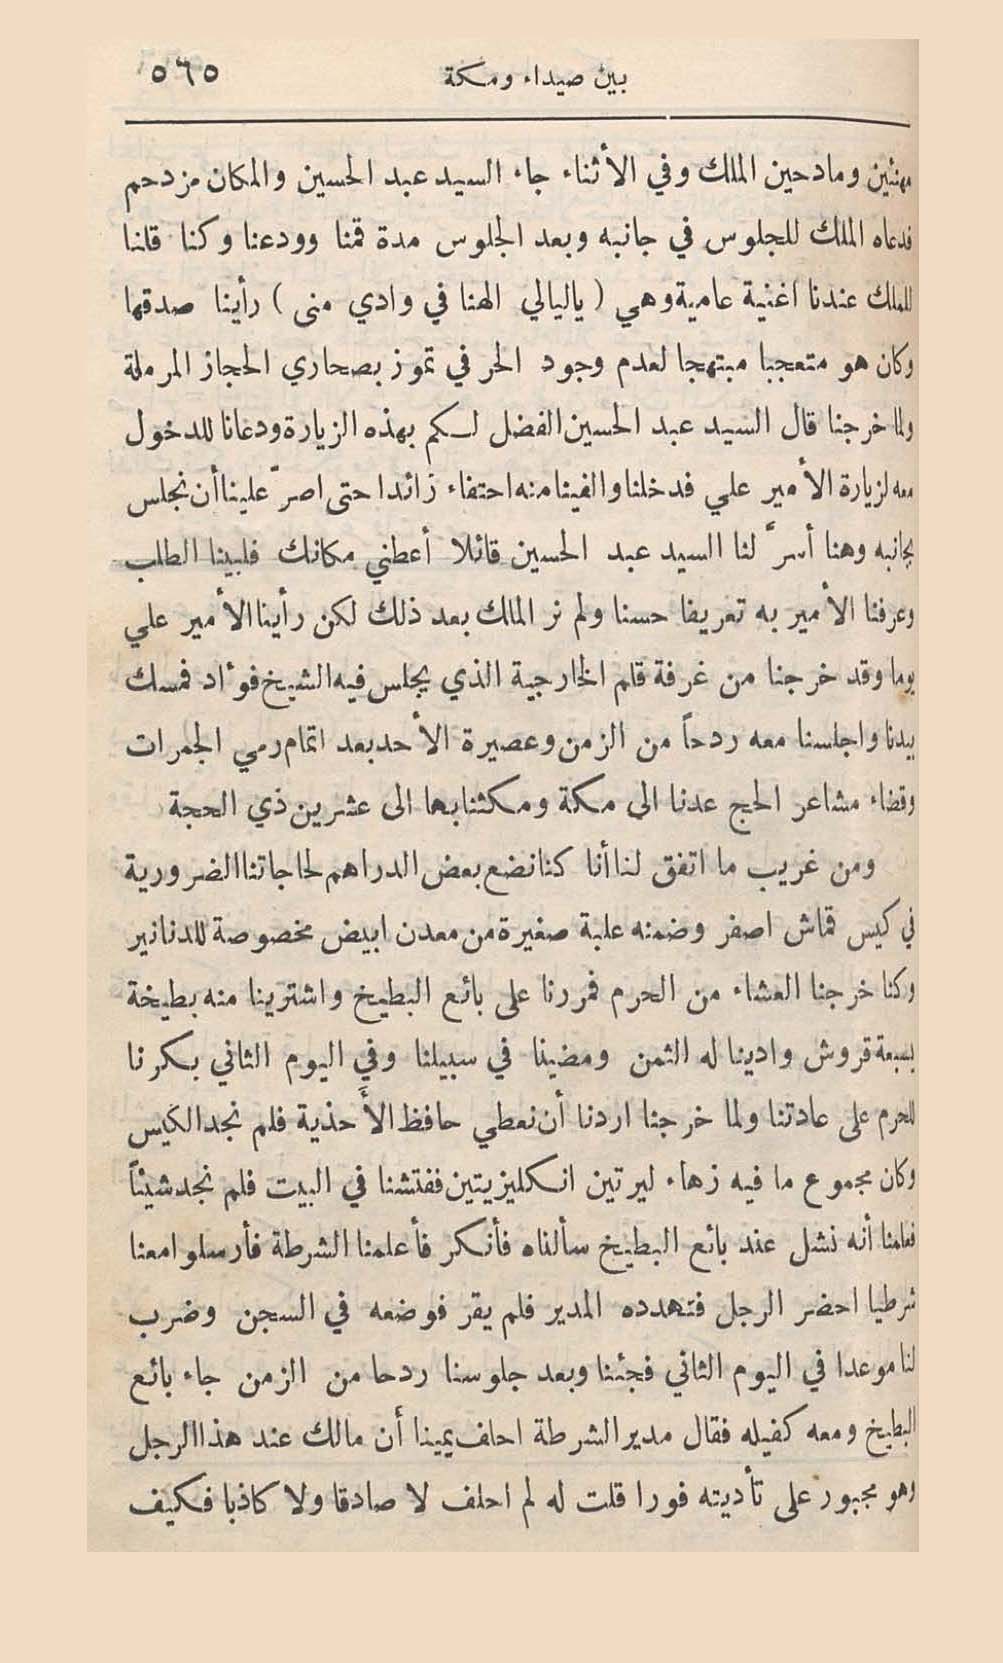 بين صيداء ومكة ٥٦٥
مهنئين ومادحين الملك وفي الأثناء جاء السيد عبد الحسين والمكان مزدحم
فدعاه الملك للجلوس في جانبه وبعد الجلوس مدة قمنا وودعنا وكنا قلنا
للملك عندنا اغنية عامية وهي ( ياليالي الهنا في وادي منى ) رأينا صدقها
وكان هو متعجبا مبتهجا لعدم وجود الحر في تموز بصحاري الحجاز المرملة
ولما خرجنا قال السيد عبد الحسين الفضل لكم بهذه الزيارة ودعانا للدخول
معه لزيارة الأمير علي فدخلنا والفينا منه احتفاء زائدا حتى اصرّ علينا أن نجلس
بجانبه وهنا أسرّ لنا السيد عبد الحسين قائلا أعطني مكانك فلبينا الطلب
وعرفنا الأمير به تعريفا حسنا ولم نر المالك بعد ذلك لكن رأينا الأمير علي
يوما وقد خرجنا من غرفة قلم الخارجية الذي يجلس فيه الشيخ فؤاد فمسك
بيدنا واجلسنا معه ردحاً من الزمن وعصيرة الأحد بعد اتمام رمي الجمرات
وقضاء مشاعر الحج عدنا الى مكة ومكثنا بها الى عشرين ذي الحجة
ومن غريب ما اتفق لنا أنا كنا نضع بعض الدراهم لحاجاتنا الضرورية
في كيس قماش اصفر وضمنه علبة صغيرة من معدن ابيض مخصوصة للدنانير
وكنا خرجنا العشاء من الحرم فمررنا على بائع البطيخ واشترينا منه بطيخة
بسبعة قروش وادينا له الثمن ومضينا في سبيلنا وفي اليوم الثاني بكرنا
للحرم على عادتنا ولما خرجنا اردنا أن نعطي حافظ الأَحذية فلم نجد الكيس
وكان مجموع ما فيه زهاء ليرتين انكليزيتين ففتشنا في البيت فلم نجد شيئاً
فعلمنا أنه نشل عند بائع البطيخ سألناه فأنكر فأعلمنا الشرطة فأرسلوا معنا
شرطيا احضر الرجل فتهدده المدير فلم يقر فوضعه في السجن وضرب
لنا موعدا في اليوم الثاني فجئنا وبعد جلوسنا ردحا من الزمن جاء بائع
البطيخ ومعه كفيله فقال مدير الشرطة احلف يمينا أن مالك عند هذا الرجل
وهو مجبور على تأديته فورا قلت له لم احلف لا صادقا ولا كاذبا فكيف